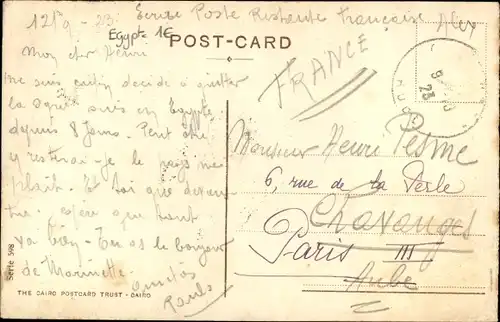 12/9 - 23. Ecrire Poste Restante française
Egypte 1E
POST-CARD
FRANCE
Mon cher Henri
me suis enfin décidé à quitter
la Syrie suis en Egypte
depuis 8 jours. Peut être
y resterai-je le pays me
plait. Et toi que deviens
tu. espère que tout
va bien - Tu as le bonjour
de Marinette.
amitiés
Monsieur Henri Pesme
6, rue de la Perle
Chavanges
Paris III
Aube
Serie 598
THE CAIRO POSTCARD TRUST - CAIRO